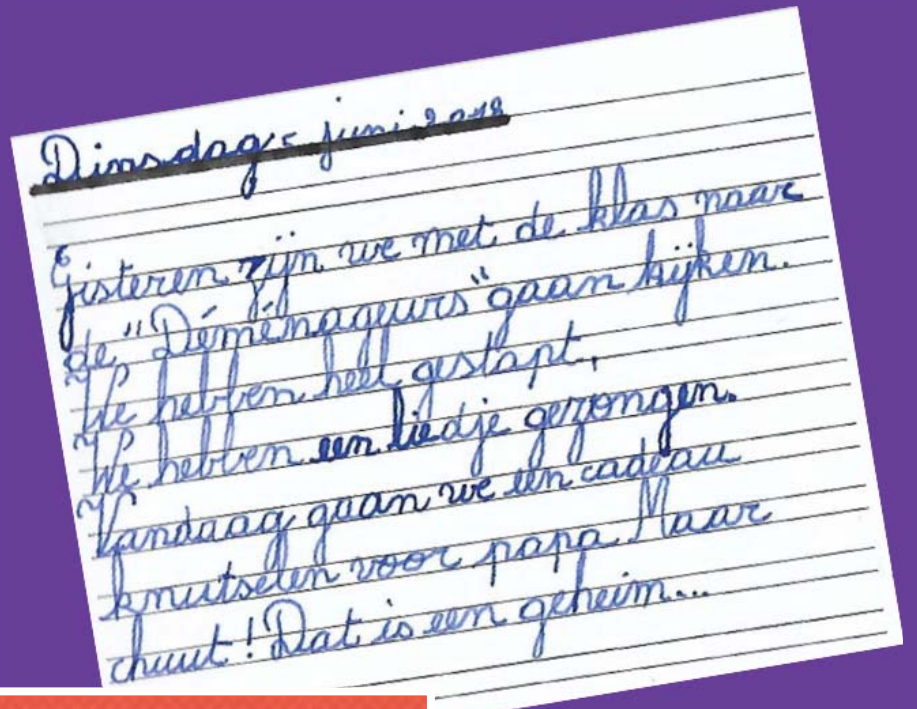 Dinsdag 5 juni 2018
Gisteren zijn we met de klas naar
de "Déménageurs" gaan kijken.
We hebben heel gestapt,
We hebben een liedje gezongen.
Vandaag gaan we een cadeau
knutselen voor papa Maar
chuut! Dat is een geheim...